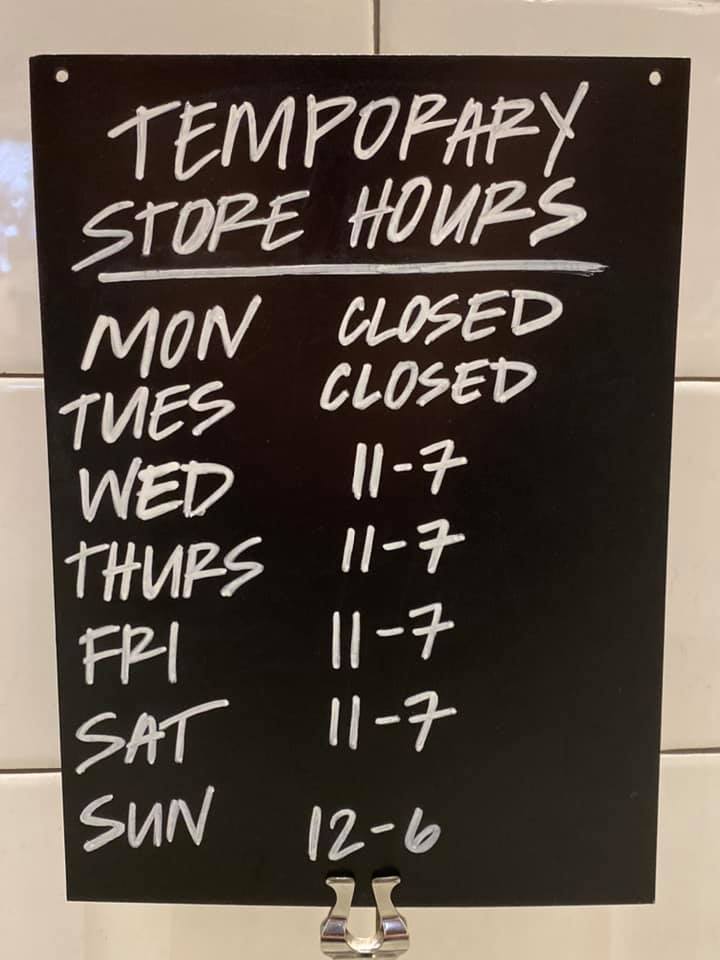 TEMPORARY
STORE HOURS
MON CLOSED
TUES CLOSED
WED 11-7
THURS 11-7
FRI 11-7
SAT 11-7
SUN 12-6